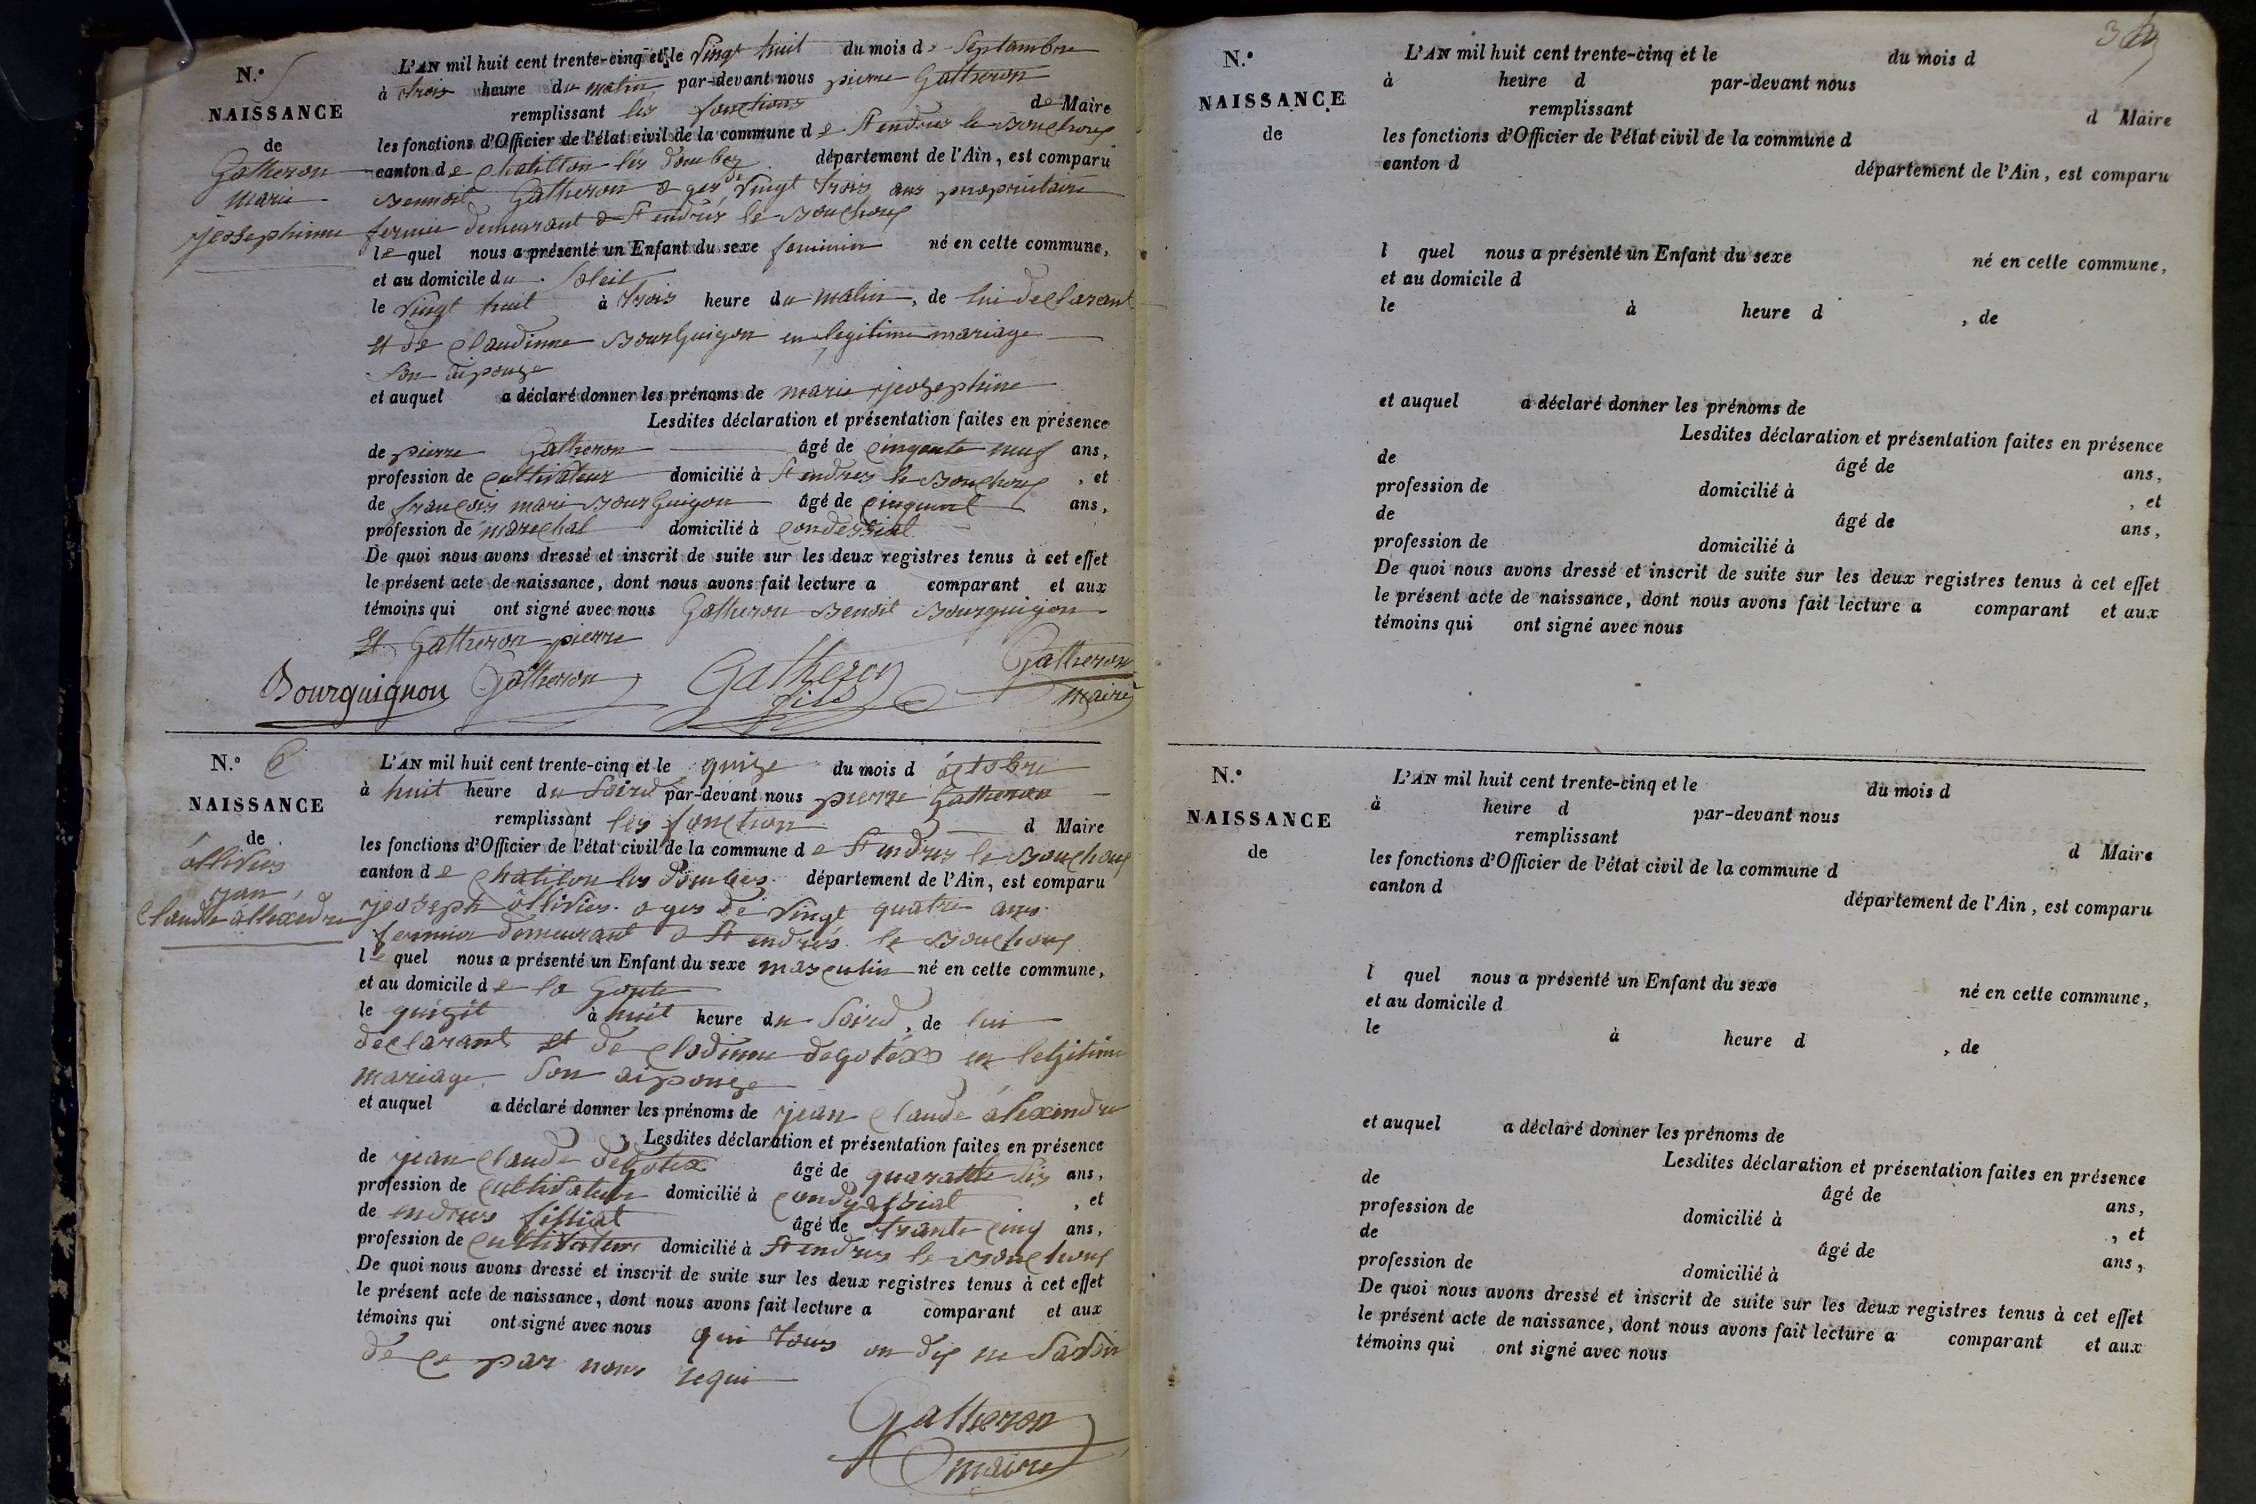 N.° 5
NAISSANCE
de
Gatheron
marie
jeosephinne
L'AN mil huit cent trente-cinq et le vingt huit du mois de Septambre
à trois heure du matin par-devant nous pierre Gatheron
remplissant les fonctions de Maire
les fonctions d'Officier de l'état civil de la commune de St endres le Bouchoux
canton de chatillon les dombes département de l'Ain, est comparu
Bennoit Gatheron a ges de vingt trois ans propriaitaire
fermier demeurant a St endrés le Bouchoux
lequel nous a présenté un Enfant du sexe feminin né en cette commune,
et au domicile du Soleil
le vingt huit à trois heure du matin, de lui declarant
et de claudinne Bourguigon en legitime mariage
Son aipouze
et auquel a déclaré donner les prénoms de marie jeosephine
Lesdites déclaration et présentation faites en présence
de pierre Gatheron âgé de cinqante neuf ans,
profession de cultivateur domicilié à St endres le Bouchoux, et
de francois marie Bourguigon âgé de cinquent ans,
profession de marechal domicilié à condessiat
De quoi nous avons dressé et inscrit de suite sur les deux registres tenus à cet effet
le présent acte de naissance, dont nous avons fait lecture a comparant et aux
témoins qui ont signé avec nous Gatheron Benoit Bourguigon
Et Gatheron pierre
Bourguignon Gatheron Gatheron fils Gatheron maire
N.° 6
NAISSANCE
de
ôllivies
jean
Claude allexedre
L'AN mil huit cent trente-cinq et le quize du mois d octobre
à huit heure du Soird par-devant nous pierre Gatheron
remplissant les fonction d Maire
les fonctions d'Officier de l'état civil de la commune de St endres le Bouchoux
canton de chatilon les dombes département de l'Ain, est comparu
jeoseph ôllivies ages de vingt quatre ans
fermier demeurant a St endrés le Bouchoux
lequel nous a présenté un Enfant du sexe masculin né en cette commune,
et au domicile de la Goute
le quizit à huit heure du Soird, de lui
declarant et de clodinne degotex en letgitime
mariage Son aipouze
et auquel a déclaré donner les prénoms de jean claude alexendre
Lesdites déclaration et présentation faites en présence
de jean claude degotex âgé de quarante six ans,
profession de cultivateur domicilié à condessiat, et
de endres fillial âgé de trante cinq ans,
profession de cultivateur domicilié à St endres le Bouchoux
De quoi nous avons dressé et inscrit de suite sur les deux registres tenus à cet effet
le présent acte de naissance, dont nous avons fait lecture a comparant et aux
témoins qui ont signé avec nous qui tous on dis ne
de ce par nous requi
Gatheron
maire
N.°
NAISSANCE
de
L'AN mil huit cent trente-cinq et le du mois d
à heure d par-devant nous
remplissant d Maire
les fonctions d'Officier de l'état civil de la commune d
canton d département de l'Ain, est comparu
l quel nous a présenté un Enfant du sexe né en cette commune,
et au domicile d
le à heure d , de
et auquel a déclaré donner les prénoms de
Lesdites déclaration et présentation faites en présence
de âgé de ans,
profession de domicilié à , et
de âgé de ans,
profession de domicilié à
De quoi nous avons dressé et inscrit de suite sur les deux registres tenus à cet effet
le présent acte de naissance, dont nous avons fait lecture a comparant et aux
témoins qui ont signé avec nous
N.°
NAISSANCE
de
L'AN mil huit cent trente-cinq et le du mois d
à heure d par-devant nous
remplissant d Maire
les fonctions d'Officier de l'état civil de la commune d
canton d département de l'Ain, est comparu
l quel nous a présenté un Enfant du sexe né en cette commune,
et au domicile d
le à heure d , de
et auquel a déclaré donner les prénoms de
Lesdites déclaration et présentation faites en présence
de âgé de ans,
profession de domicilié à , et
de âgé de ans,
profession de domicilié à
De quoi nous avons dressé et inscrit de suite sur les deux registres tenus à cet effet
le présent acte de naissance, dont nous avons fait lecture a comparant et aux
témoins qui ont signé avec nous